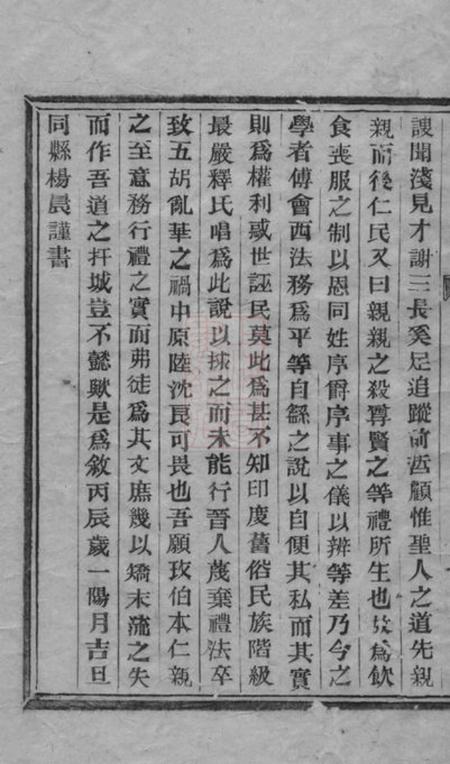 謏聞淺見才謝三長奚足追蹤前哲顧惟聖人之道先親
親而後仁民又曰親親之殺尊賢之等禮所生也故爲飲
食喪服之制以恩同姓序爵序事之儀以辨等差乃今之
學者傅會西法務爲平等自繇之說以自便其私而其實
則爲權利惑世誣民莫此爲甚不知印度舊俗民族階級
最嚴釋氏唱爲此說以捄之而未能行晉人蔑棄禮法卒
致五胡亂華之禍中原陸沈良可畏也吾願玫伯本仁親
之至意務行禮之實而弗徒爲其文庶幾以矯末流之失
而作吾道之扞城豈不懿歟是爲敘丙辰歲一陽月吉旦
同縣楊晨謹書